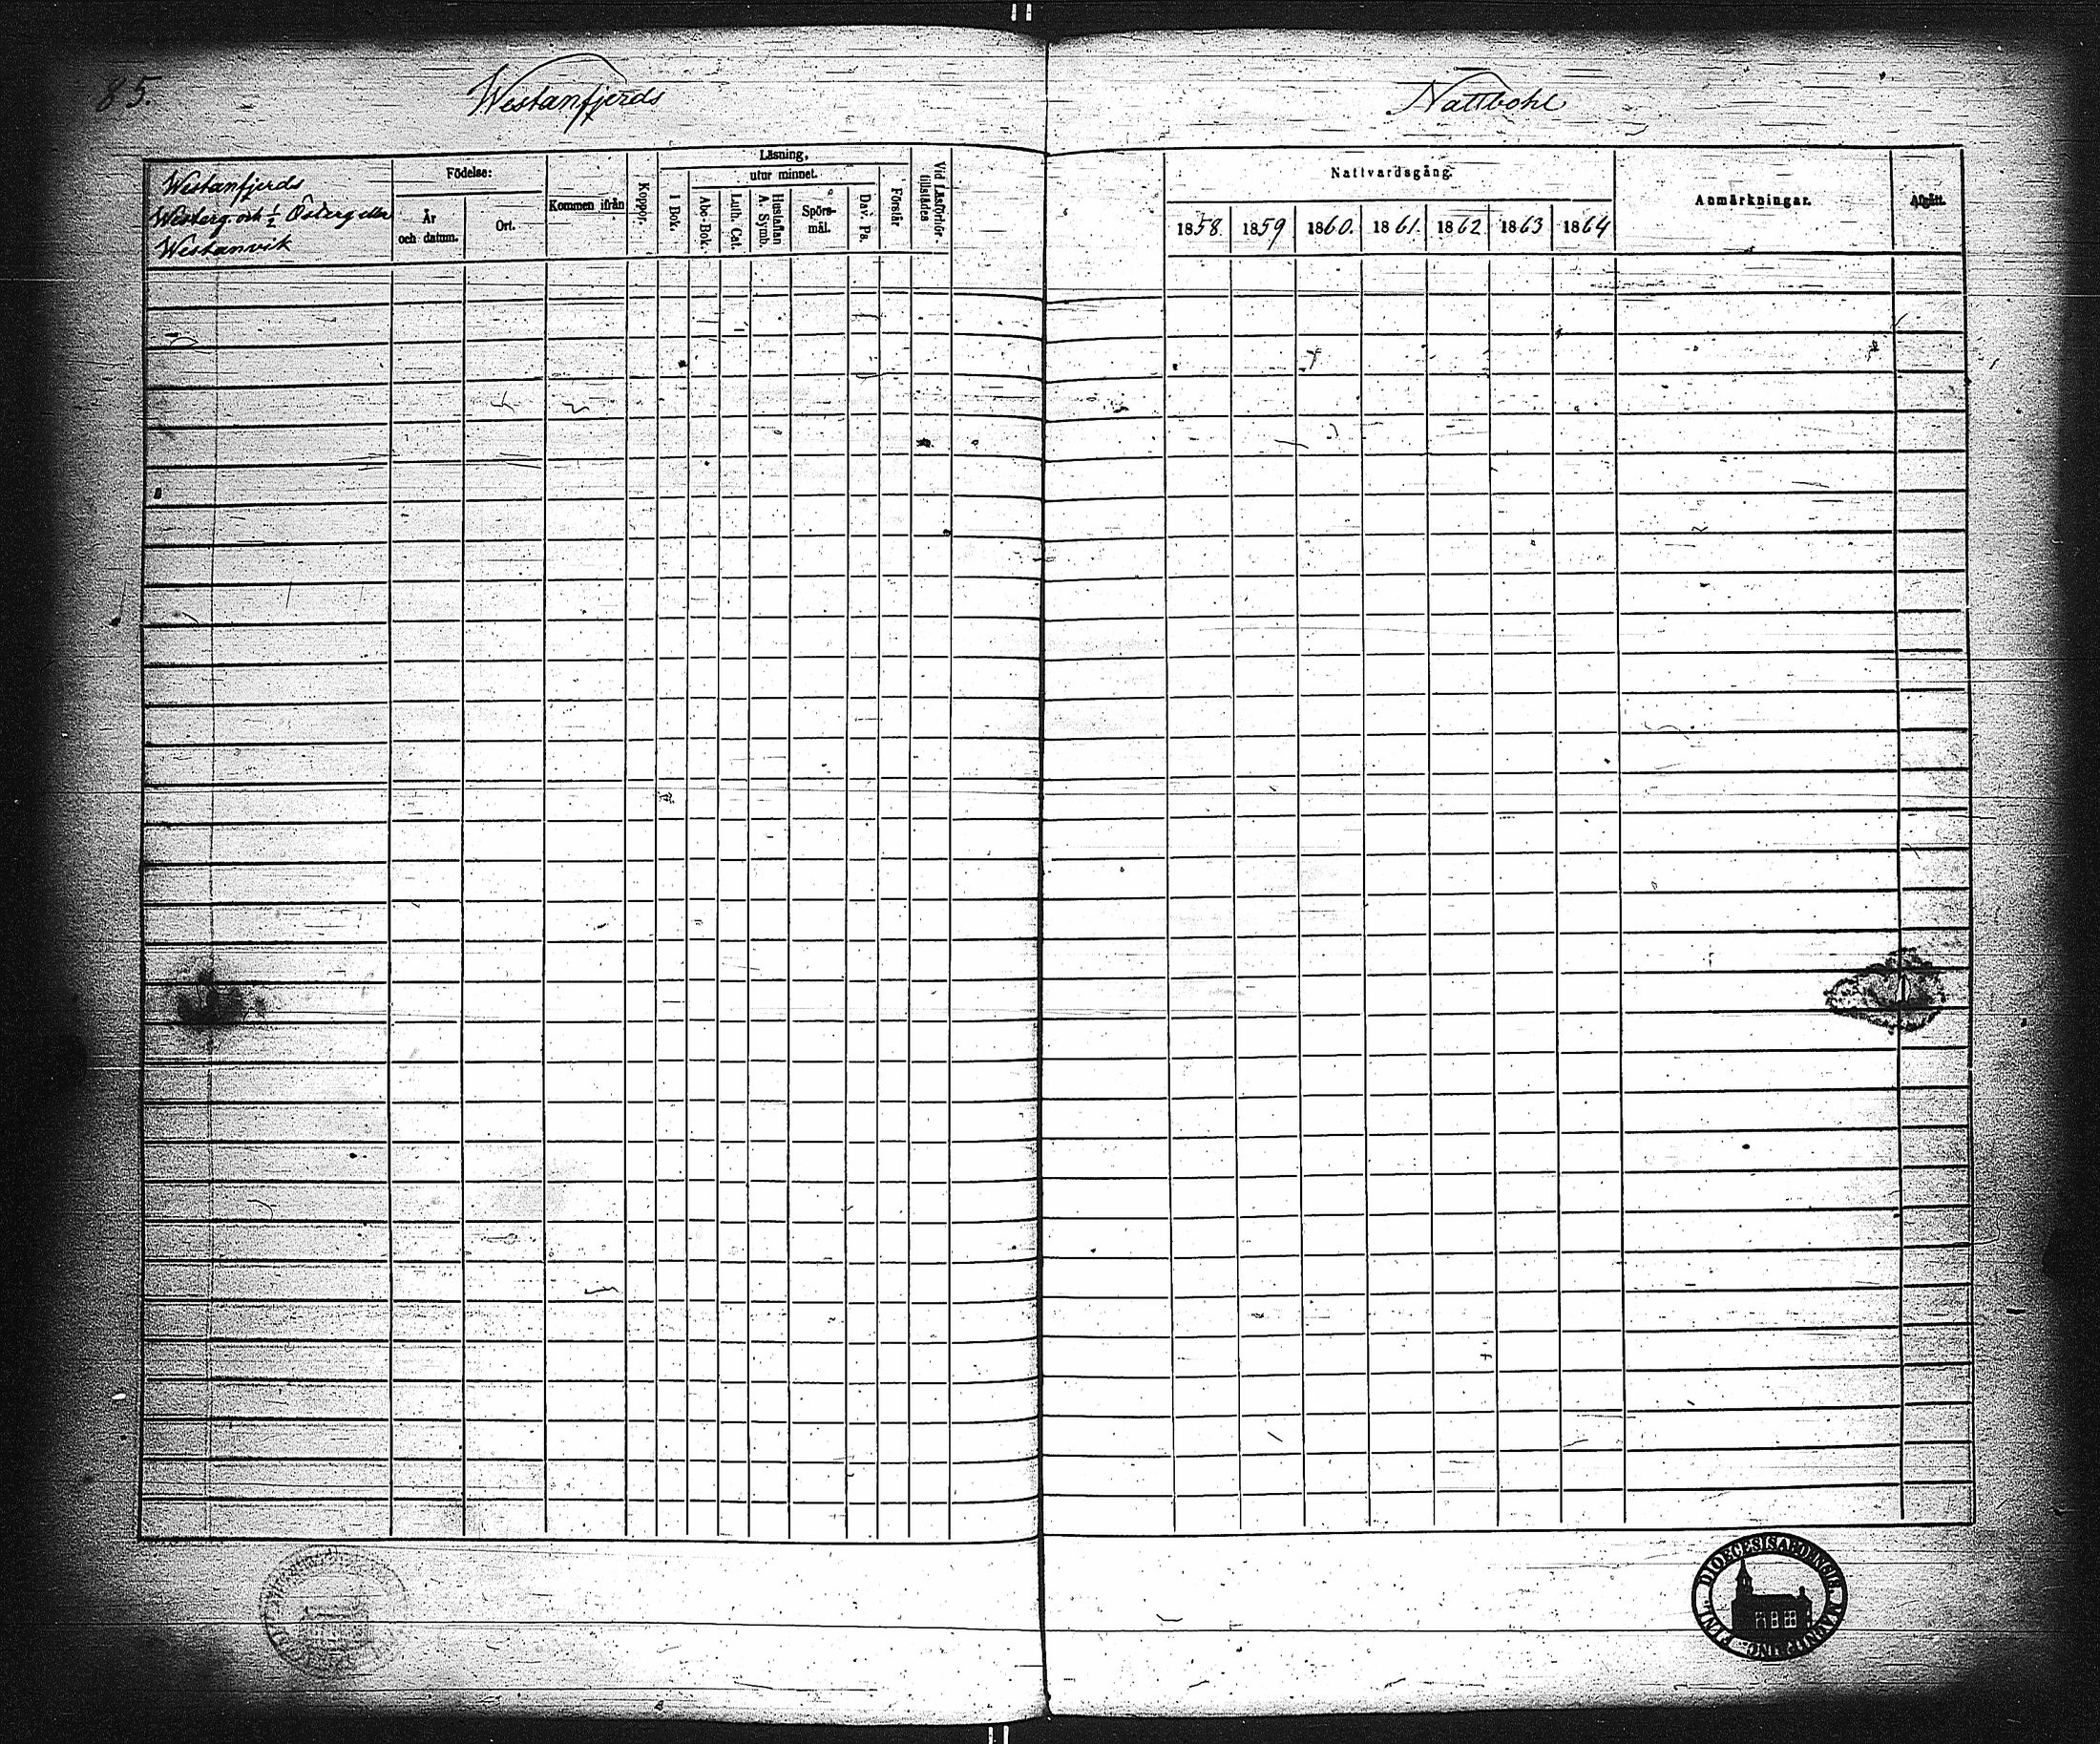 85.
Westanfjerds
Nattbohl
Westanfjerds
Westerg. och ½ Österg eller
Westanvik
Födelse:
År
och datum.
Ort.
Kommen ifrån
Koppor.
Läsning,
utur minnet.
I Bok.
Abc-Bok.
Luth. Cat.
Hustaflan
A. Symb.
Spörs-
mål.
Dav. Ps.
Förstår
Vid Läsförhör.
tillstädes
Nattvardsgång.
1858.
1859
1860.
1861.
1862
1863
1864
Anmärkningar.
Afgått.